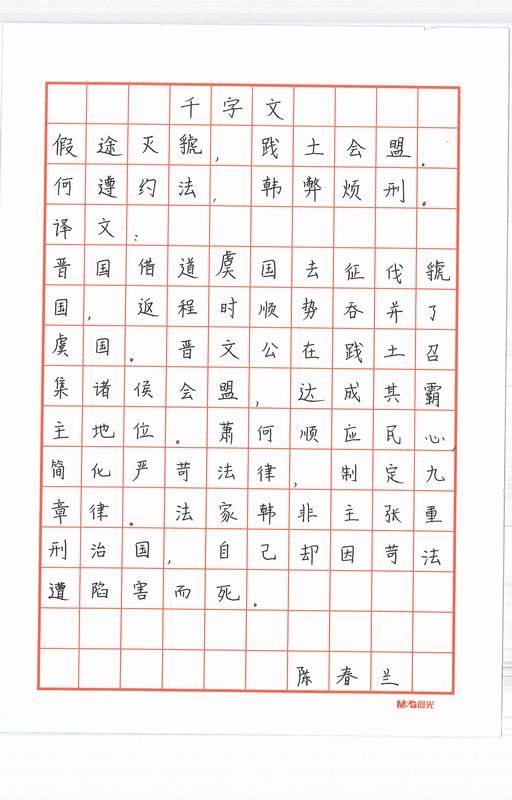 千字文
假途灭虢,践土会盟。
何遵约法,韩弊烦刑。
译文:
晋国借道虞国去征伐虢
国,返程时顺势吞并了
虞国。晋文公在践土召
集诸侯会盟,达成其霸
主地位。萧何顺应民心,
简化严苛法律,制定九
章律。法家韩非主张重
刑治国,自己却因苛法
遭陷害而死。
陈春兰
M&G晨光